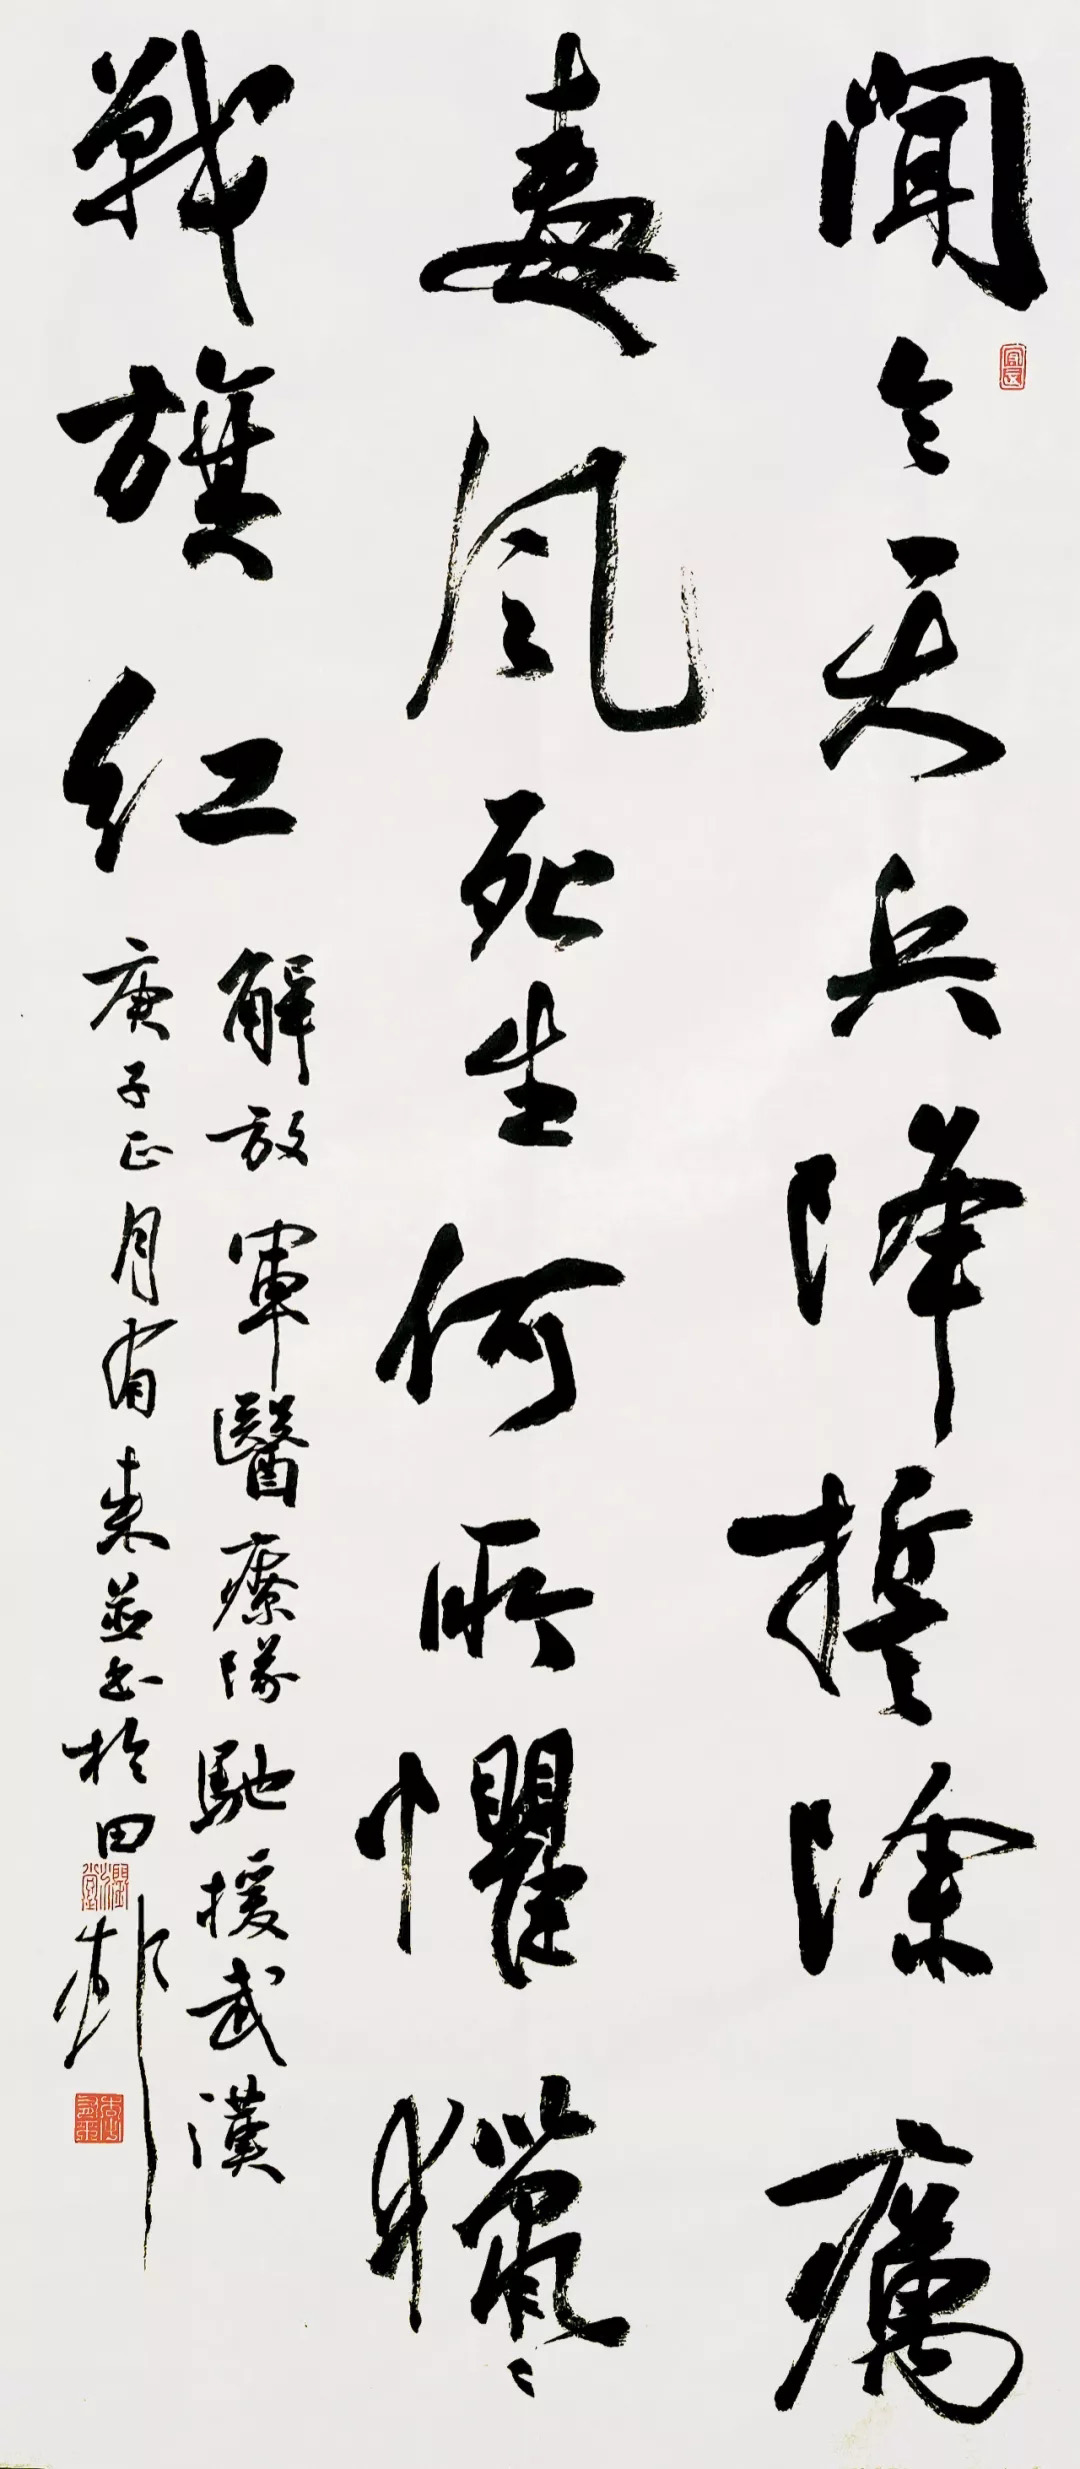 聞令天兵降誓除癘
毒風死生何所懼獵〻
戰旗紅
解放軍醫療隊馳援武漢
庚子正月並書於田邨